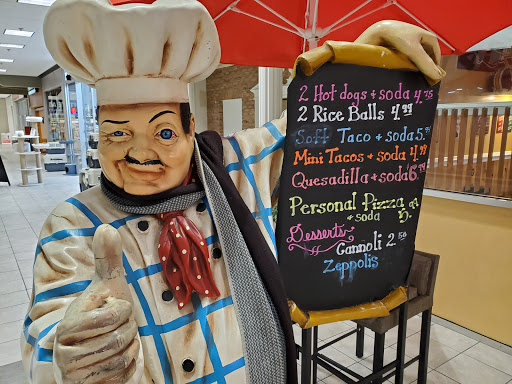 2 Hot dogs + soda 4.75
2 Rice Balls 4.99
Soft Taco + soda 5.
Mini Tacos + soda 4.99
Quesadilla + soda
Personal Pizza
+ soda
Desserts
Cannoli 2.50
Zeppolis